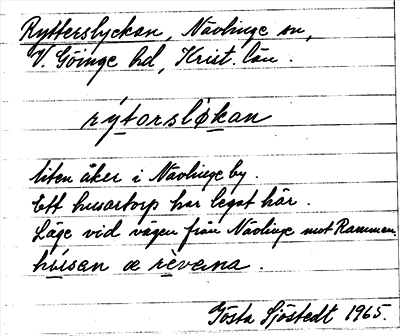 Rytterslyckan, Nävlinge sn,
V. Göinge hd, Krist. län.
rýtorsløkan
liten åker i Nävlinge by.
Ett husartorp har legat här.
Läge vid vägen från Nävlinge mot Rammen.
húsan æ rèverna.
Gösta Sjöstedt 1965.